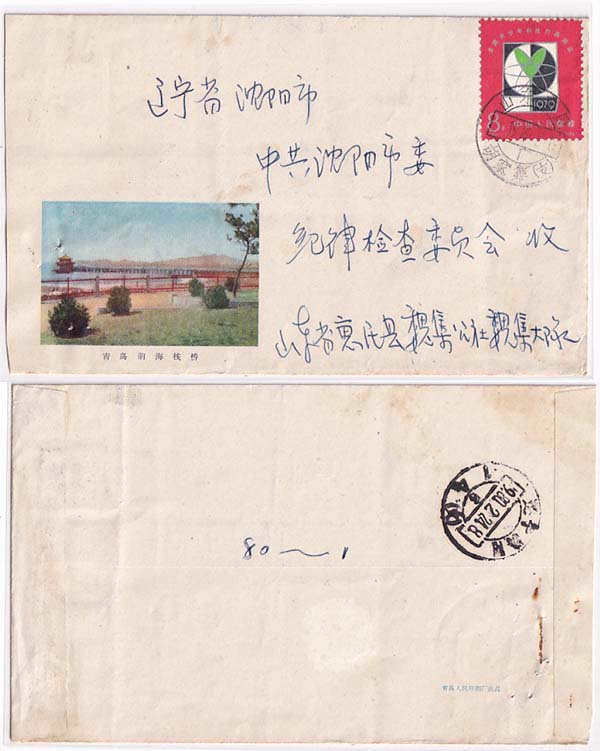 辽宁省沈阳市
中共沈阳市委
纪律检查委员会 收
山东省惠民县魏集公社魏集大队
8分 中国人民邮政
1979
青岛前海栈桥
80—1
青岛人民印刷厂出品